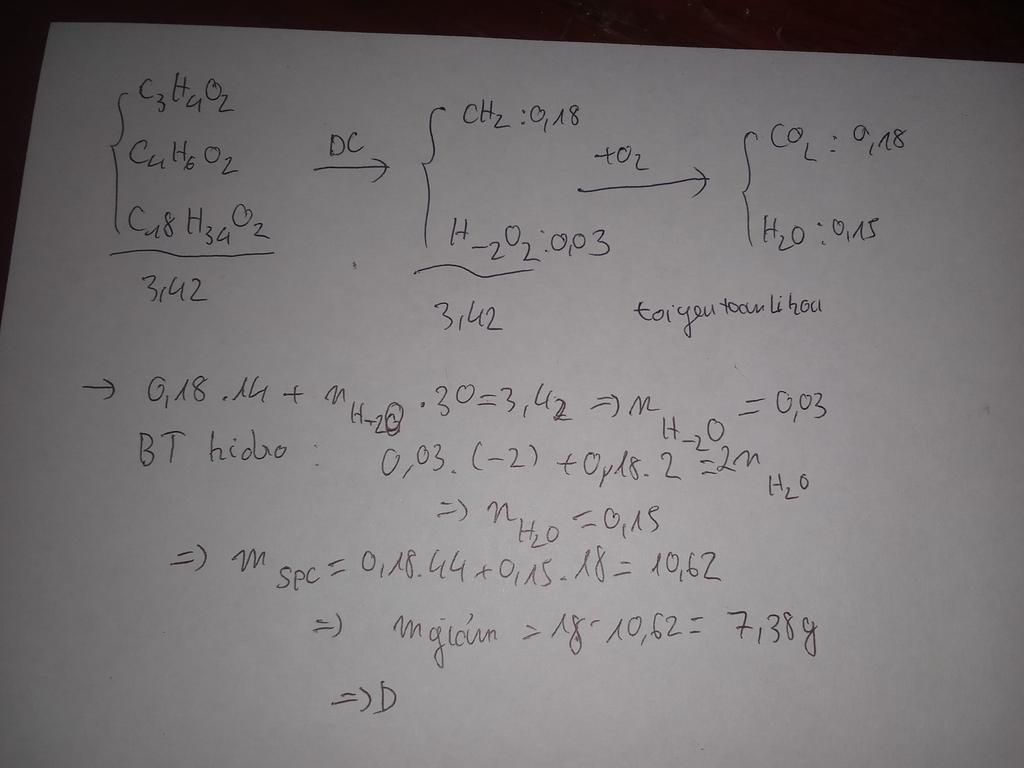 C3H4O2
C4H6O2
C18H34O2
3,42
DC
CH2 : 0,18
H-2O2 : 0,03
3,42
+O2
CO2 : 0,18
H2O : 0,15
toiyeutoanlihoa
→ 0,18 . 14 + n H-2O . 30 = 3,42 => n H-2O = 0,03
BT hidro : 0,03. (-2) + 0,18. 2 = 2n H2O
=> n H2O = 0,15
=> m spc = 0,18.44 + 0,15.18 = 10,62
=> m giảm = 18 - 10,62 = 7,38g
=> D